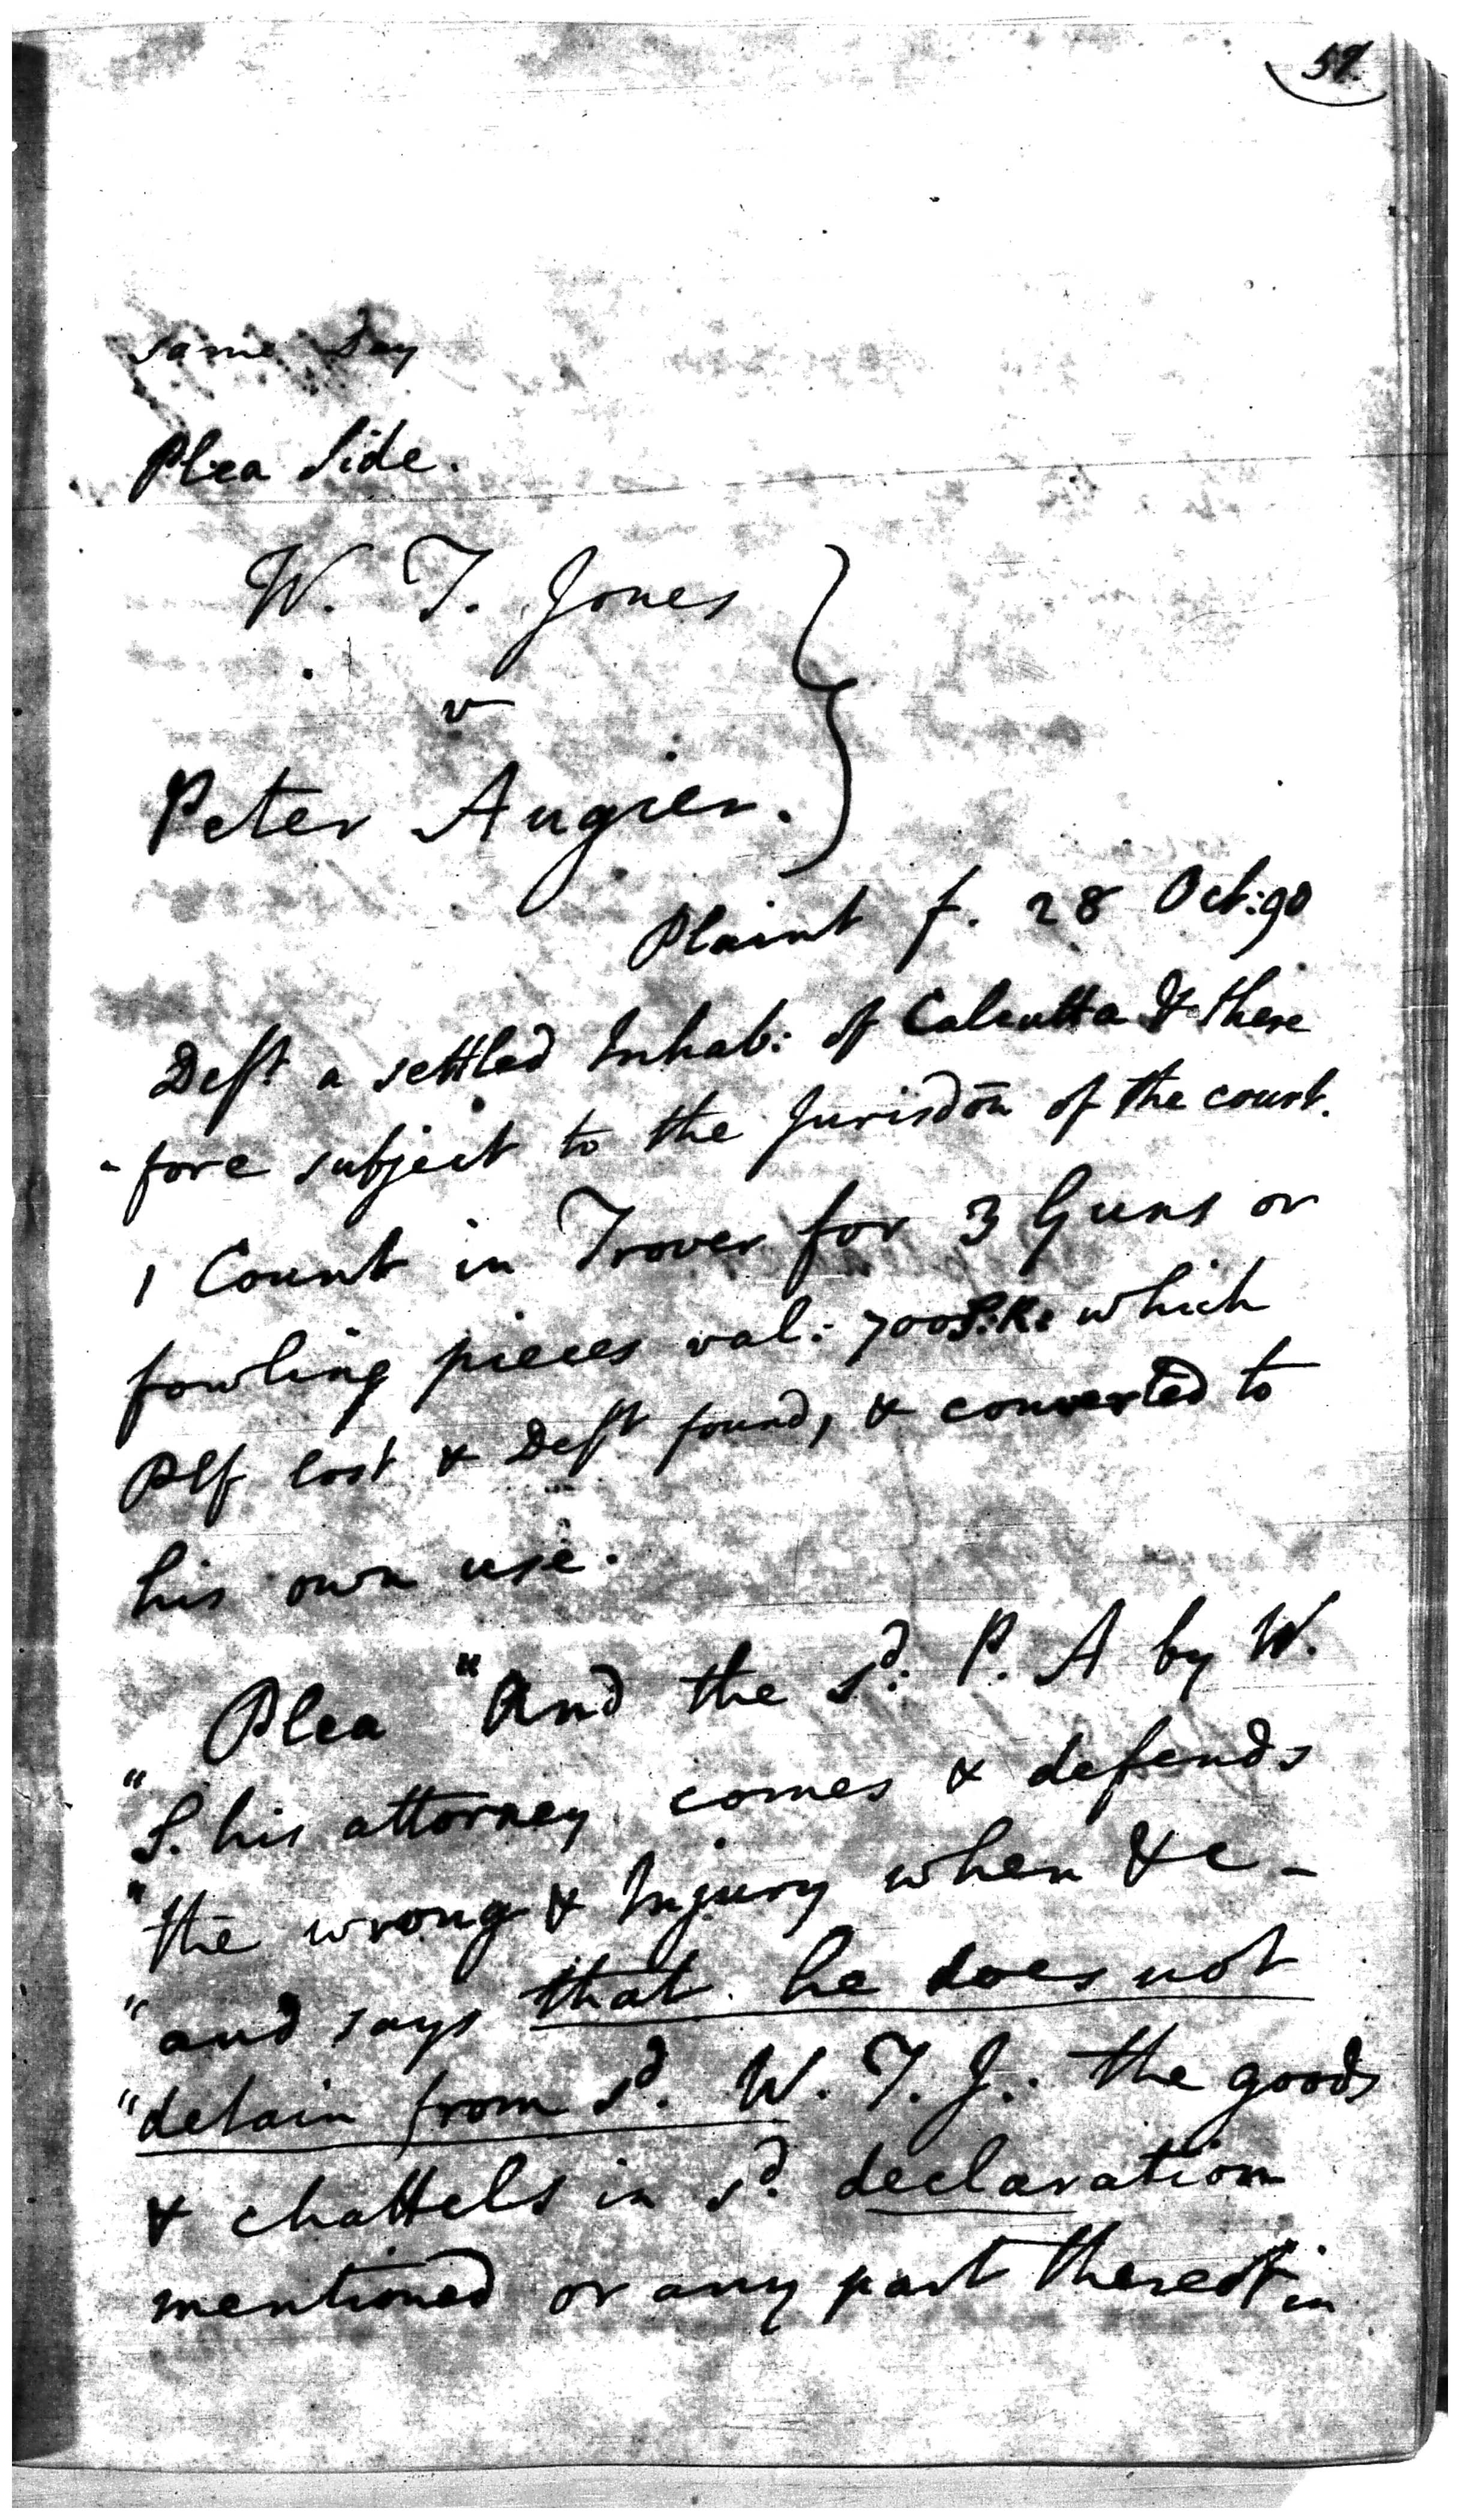 59.
same Day
Plea Side.
W. T. Jones
v
Peter Augier.
Plaint f. 28 Oct: 90
Deft a settled Inhab: of Calcutta & there
-fore subject to the Jurisdōn of the court.
1 Count in Trover for 3 Guns or
fowling pieces val: 700 S.R: which
Plf lost & Deft found, & converted to
his own use.
Plea "And the sd. P. A by W.
"S. his attorney comes & defends
"the wrong & Injury when &c -
"and says that he does not
"detain from sd. W. T. J. the goods
& chattels in sd. declaration
mentioned or any part thereof in